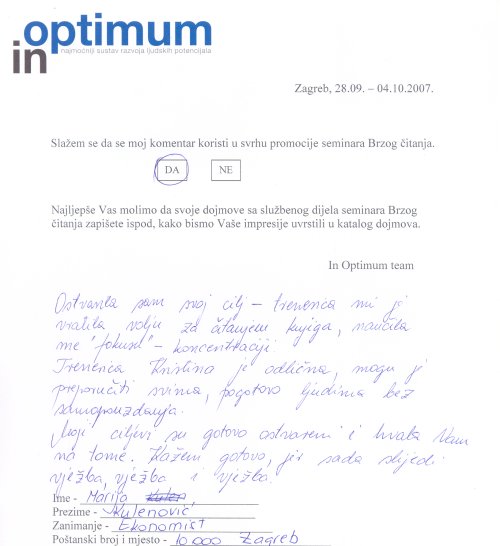 in optimum
najmoćniji sustav razvoja ljudskih potencijala
Zagreb, 28.09. – 04.10.2007.
Slažem se da se moj komentar koristi u svrhu promocije seminara Brzog čitanja.
DA NE
Najljepše Vas molimo da svoje dojmove sa službenog dijela seminara Brzog
čitanja zapišete ispod, kako bismo Vaše impresije uvrstili u katalog dojmova.
In Optimum team
Ostvarila sam svoj cilj – trenerica mi je
vratila volju za čitanjem knjiga, naučila
me "fokusu" - koncentraciji
Trenerica Kristina je odlična, mogu je
preporučiti svima, pogotovo ljudima bez
samopouzdanja.
Moji ciljevi su gotovo ostvareni i hvala Vam
na tome. Kažem gotovo, jer sada slijedi
vježba, vježba i vježba.
Ime - Marija
Prezime - Kulenović
Zanimanje - Ekonomist
Poštanski broj i mjesto - 10000 Zagreb